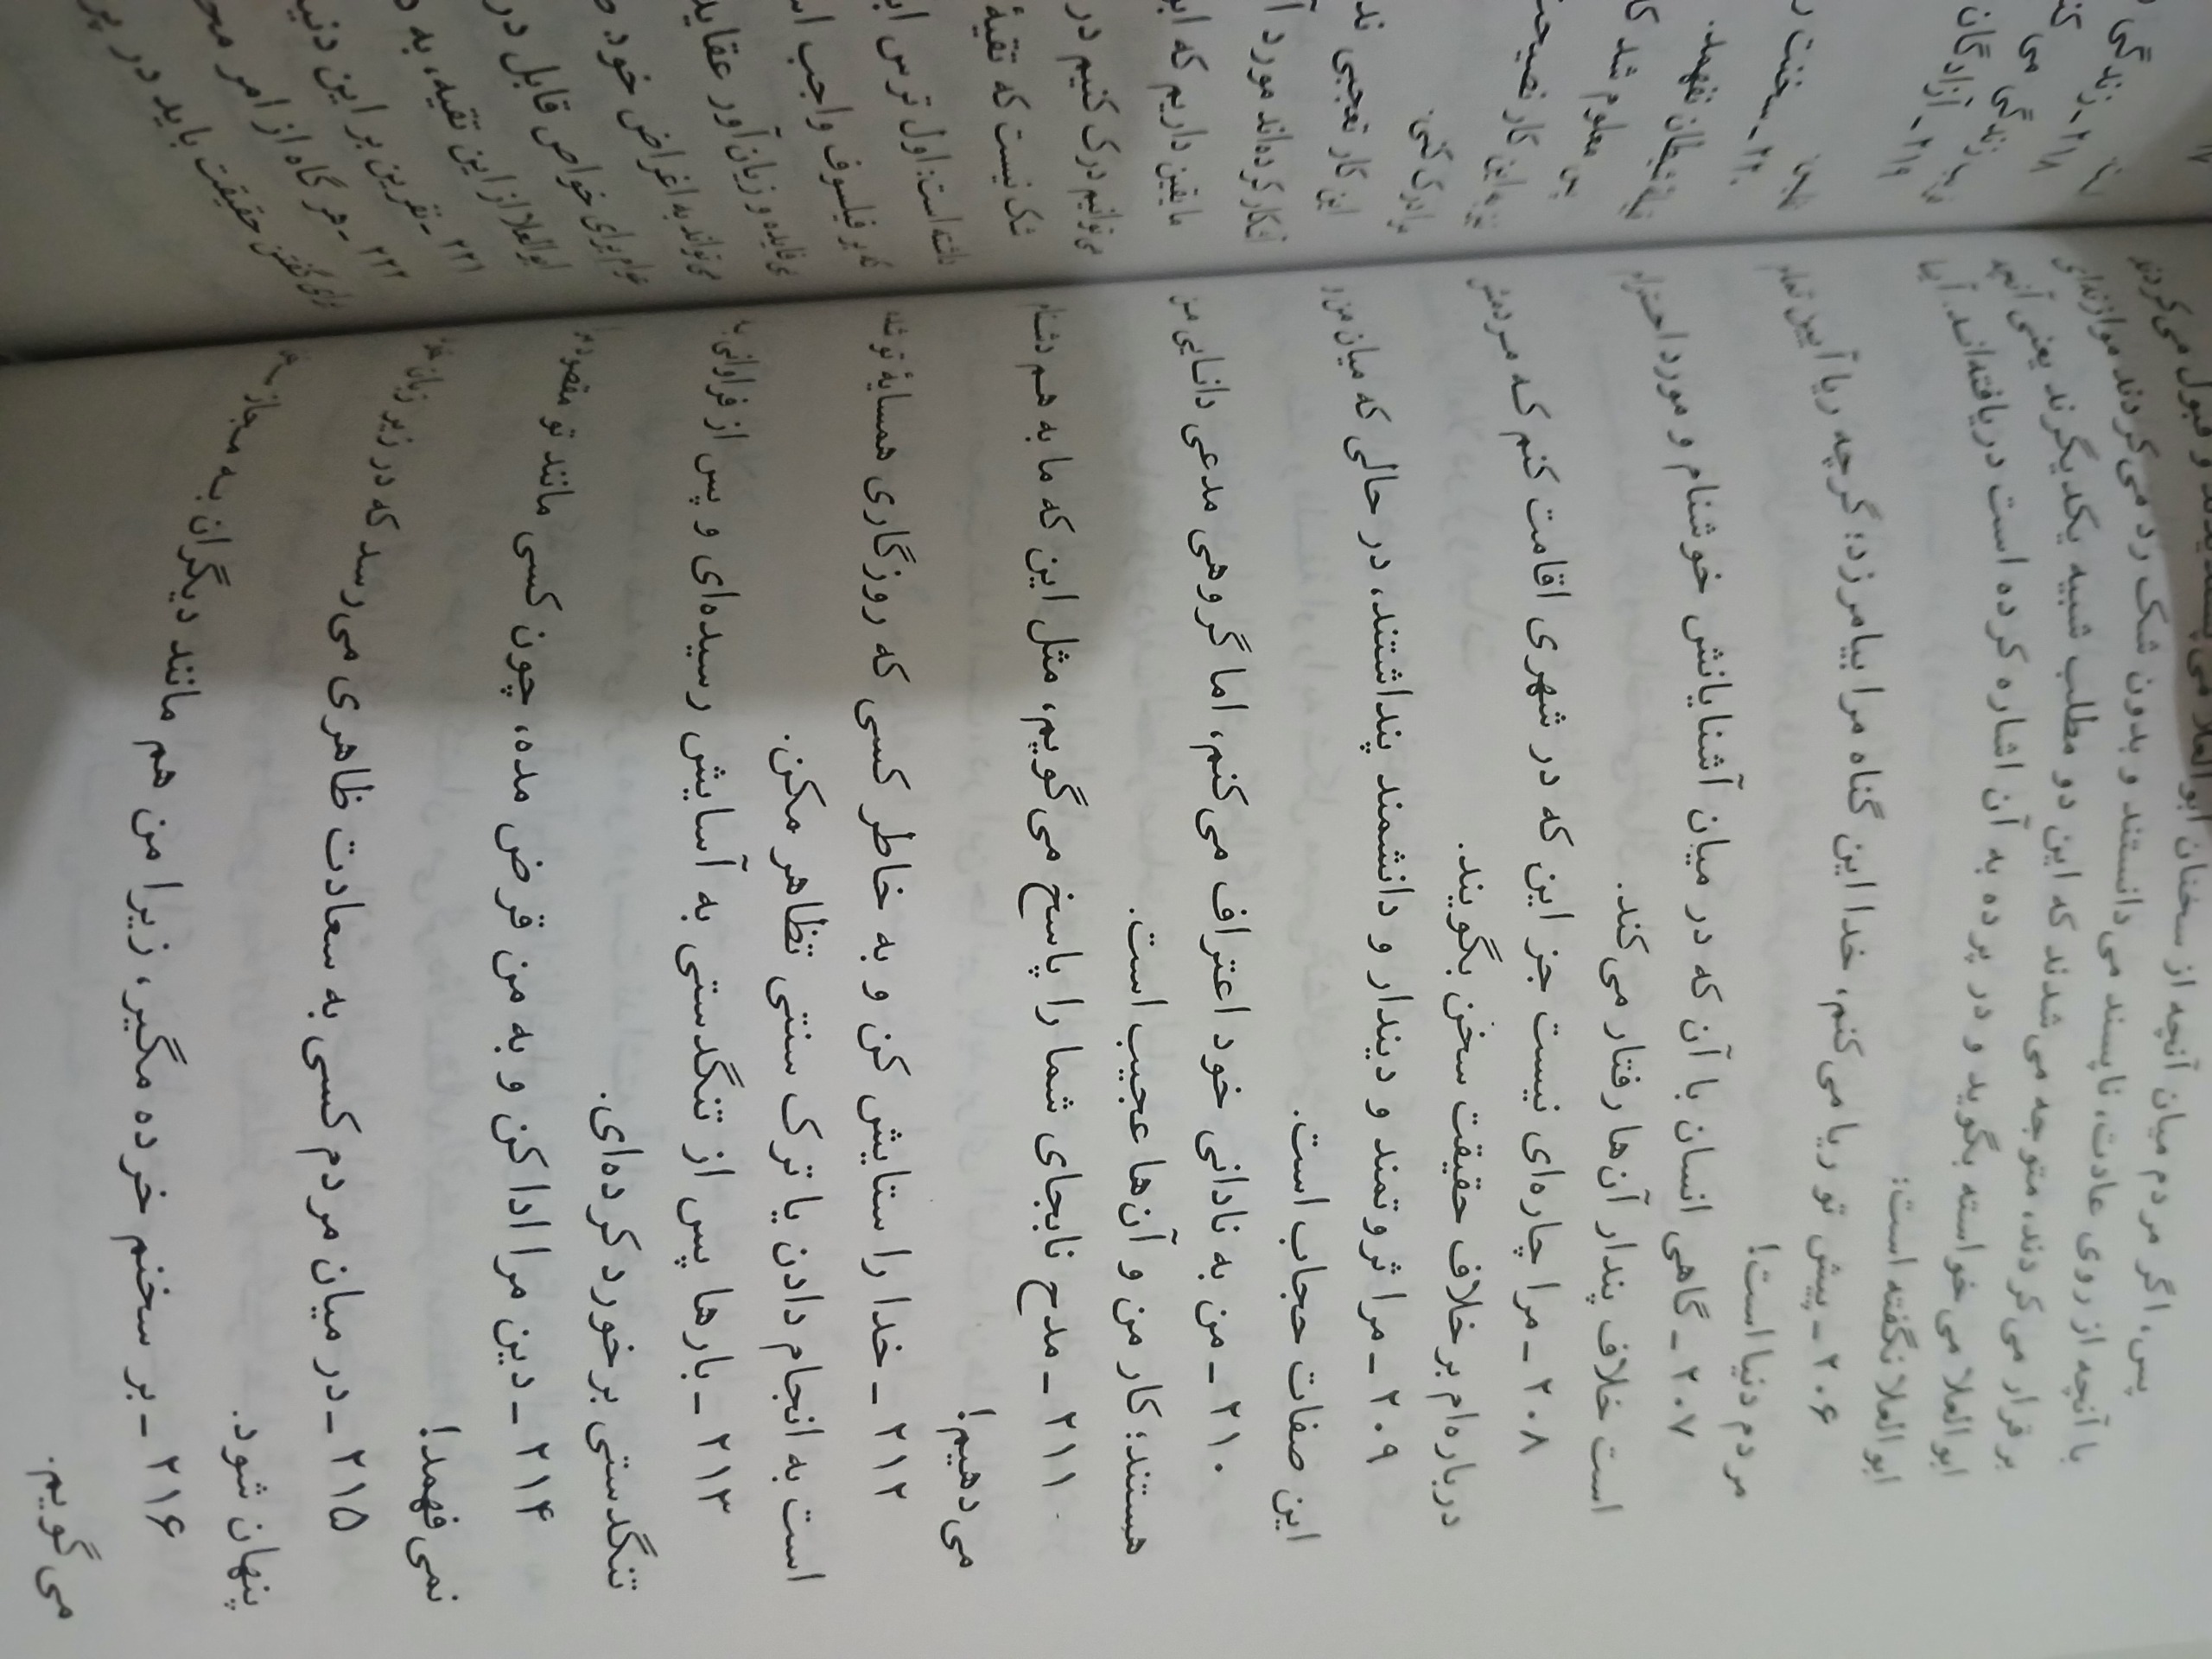 می‌پسندیدند و قبول می‌کردند
پس، اگر مردم میان آنچه از سخنان ابوالعلا
با آنچه از روی عادت، ناپسند می‌دانستند و بدون شک رد می‌کردند موازنه‌ای
برقرار می‌کردند، متوجه می‌شدند که این دو مطلب شبیه یکدیگرند یعنی آنچه
ابوالعلا می‌خواسته بگوید و در پرده به آن اشاره کرده است دریافته‌اند. آیا
ابوالعلا نگفته است:
۲۰۶ ـ پیش تو ریا می‌کنم، خدا این گناه مرا بیامرزد؛ گرچه ریا آیین تمام
مردم دنیا است!
۲۰۷ ـ گاهی انسان با آن که در میان آشنایانش خوشنام و مورد احترام
است خلاف پندار آن‌ها رفتار می‌کند.
۲۰۸ ـ مرا چاره‌ای نیست جز این که در شهری اقامت کنم که مردمش
درباره‌ام بر خلاف حقیقت سخن بگویند.
۲۰۹ ـ مرا ثروتمند و دیندار و دانشمند پنداشتند، در حالی که میان من و
این صفات حجاب است.
۲۱۰ ـ من به نادانی خود اعتراف می‌کنم، اما گروهی مدعی دانایی من
هستند؛ کار من و آن‌ها عجیب است.
۲۱۱ ـ مدح نابجای شما را پاسخ می‌گویم، مثل این که ما به هم دشنام
می‌دهیم!
۲۱۲ ـ خدا را ستایش کن و به خاطر کسی که روزگاری همسایهٔ تو شده
است به انجام دادن یا ترک سنتی تظاهر مکن.
۲۱۳ ـ بارها پس از تنگدستی به آسایش رسیده‌ای و پس از فراوانی به
تنگدستی برخورد کرده‌ای.
۲۱۴ ـ دین مرا ادا کن و به من قرض مده، چون کسی مانند تو مقصود
نمی‌فهمد!
۲۱۵ ـ در میان مردم کسی به سعادت ظاهری می‌رسد که در زیر زبان
پنهان شود.
۲۱۶ ـ بر سخنم خرده مگیر، زیرا من هم مانند دیگران به مجاز
می‌گویم.
زندگی
۲۱۸ ـ زندگی
زندگی می
۲۱۹ ـ آزادگان
۲۲۰ ـ سخت
شیطان نفهمد.
معلوم شد
این کار نصیحت
درک کنی.
این کار تعجبی
انکار کرده‌اند مورد
ما یقین داریم که
می‌توانیم درک کنیم
شک نیست که تقیهٔ
داشته است: اول ترس
که بر فیلسوف واجب
بی‌فایده و زیان‌آور عقاید
می‌تواند به اغراض خود
عوام برای خواص قابل
ابوالعلا از این تقیه، به
۲۲۱ ـ نفرین بر این
۲۲۲ ـ هر گاه از امر
برای گفتن حقیقت باید در